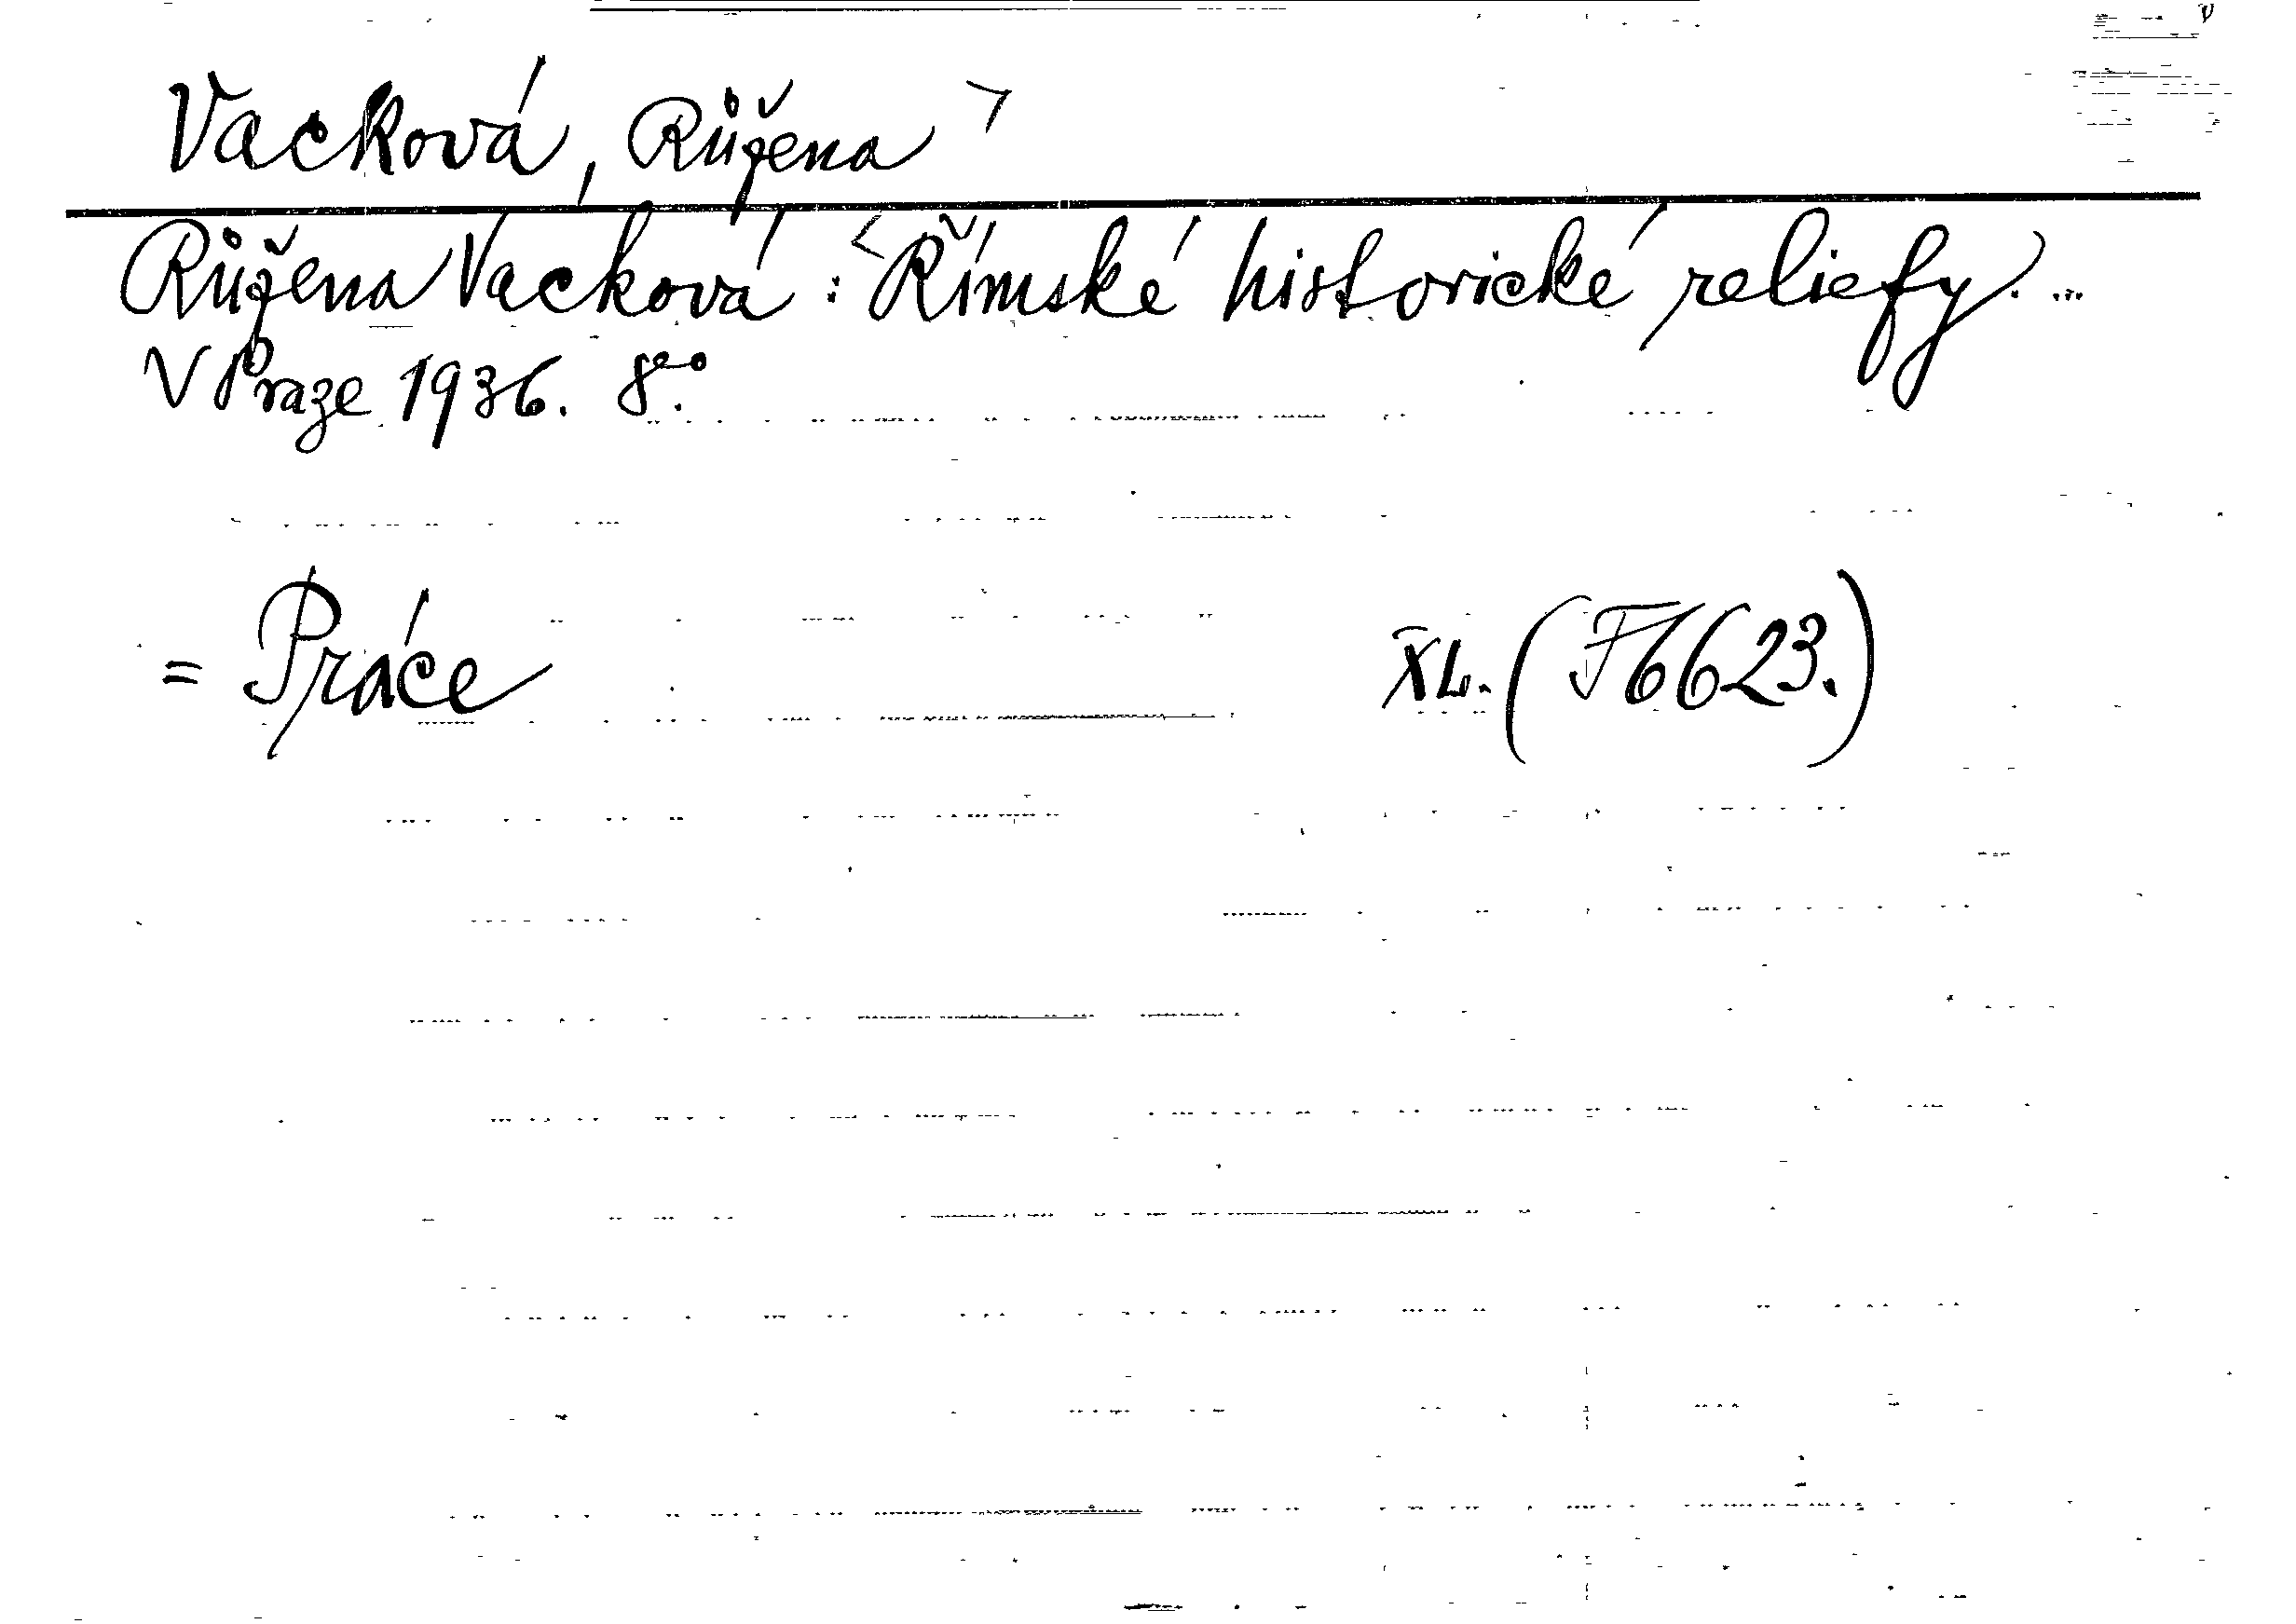 Vacková, Růžena
Růžena Vacková: Římské historické reliefy. ...
V Praze 1936. 8°.
= Práce XL. (F6623.)